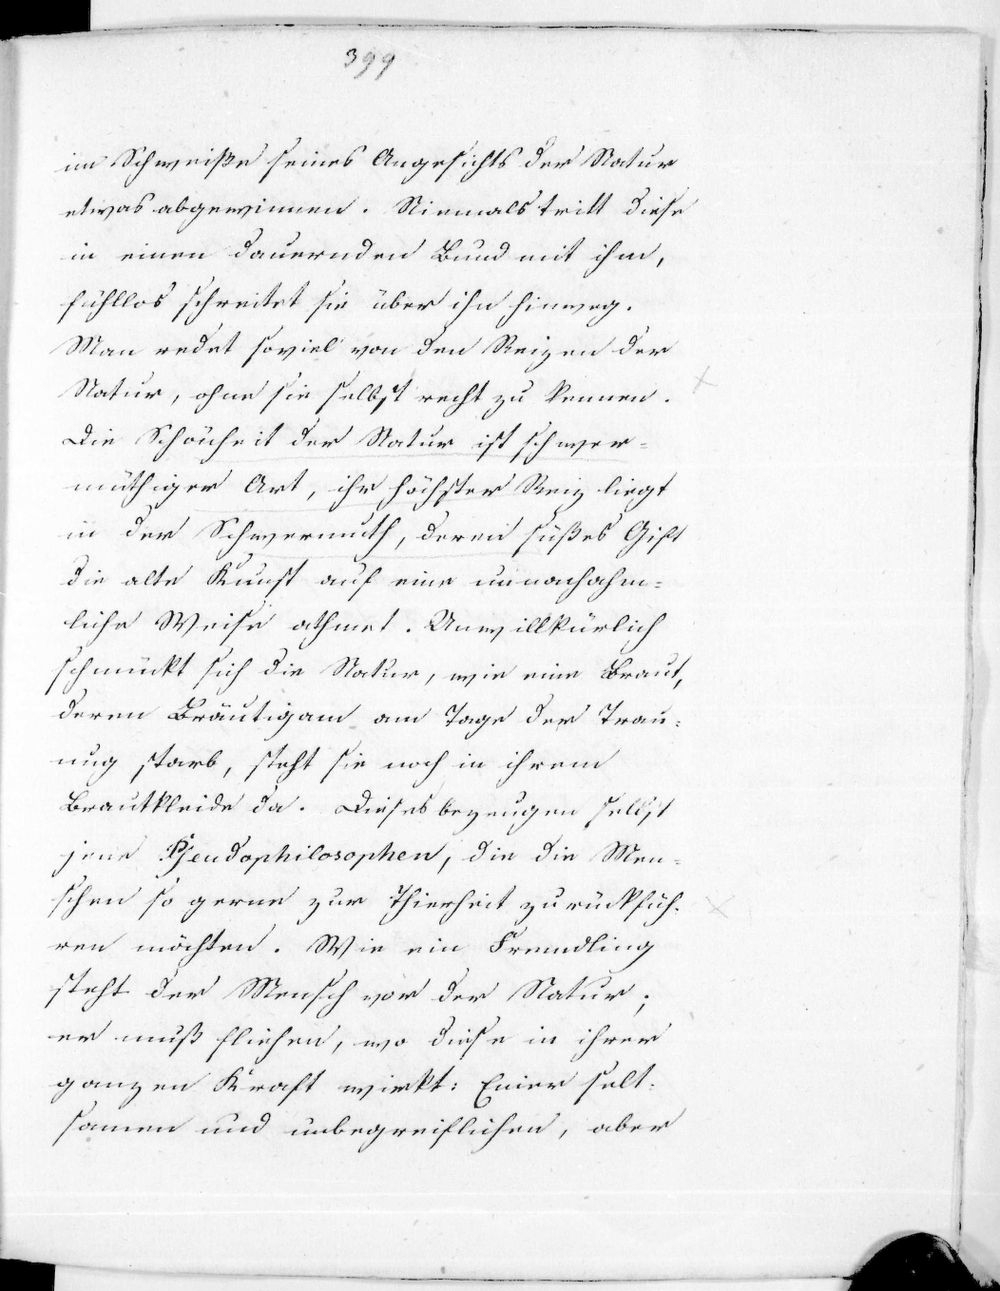 399
im Schweiße seines Angesichts der Natur
etwas abgewinnen. Niemals tritt diese
in einen dauernden Bund mit ihm,
fühllos schreitet sie über ihn hinweg.
Man redet soviel von den Reizen der
Natur, ohne sie selbst recht zu kennen.
Die Schönheit der Natur ist schwer=
müthiger Art, ihr höchster Reiz liegt
in der Schwermuth, deren süßes Gift
die alte Kunst auf eine unnachahm=
liche Weise athmet. Unwillkürlich
schmückt sich die Natur, wie eine Braut,
deren Bräutigam am Tage der Trau=
ung starb, steht sie noch in ihrem
Brautkleide da. Dieses bezeugen selbst
jene Pseudophilosophen, die die Men=
schen so gerne zur Thierheit zurückfüh=
ren möchten. Wie ein Fremdling
steht der Mensch vor der Natur;
er muß fliehen, wo diese in ihrer
ganzen Kraft wirkt: Einer selt=
samen und unbegreiflichen, aber